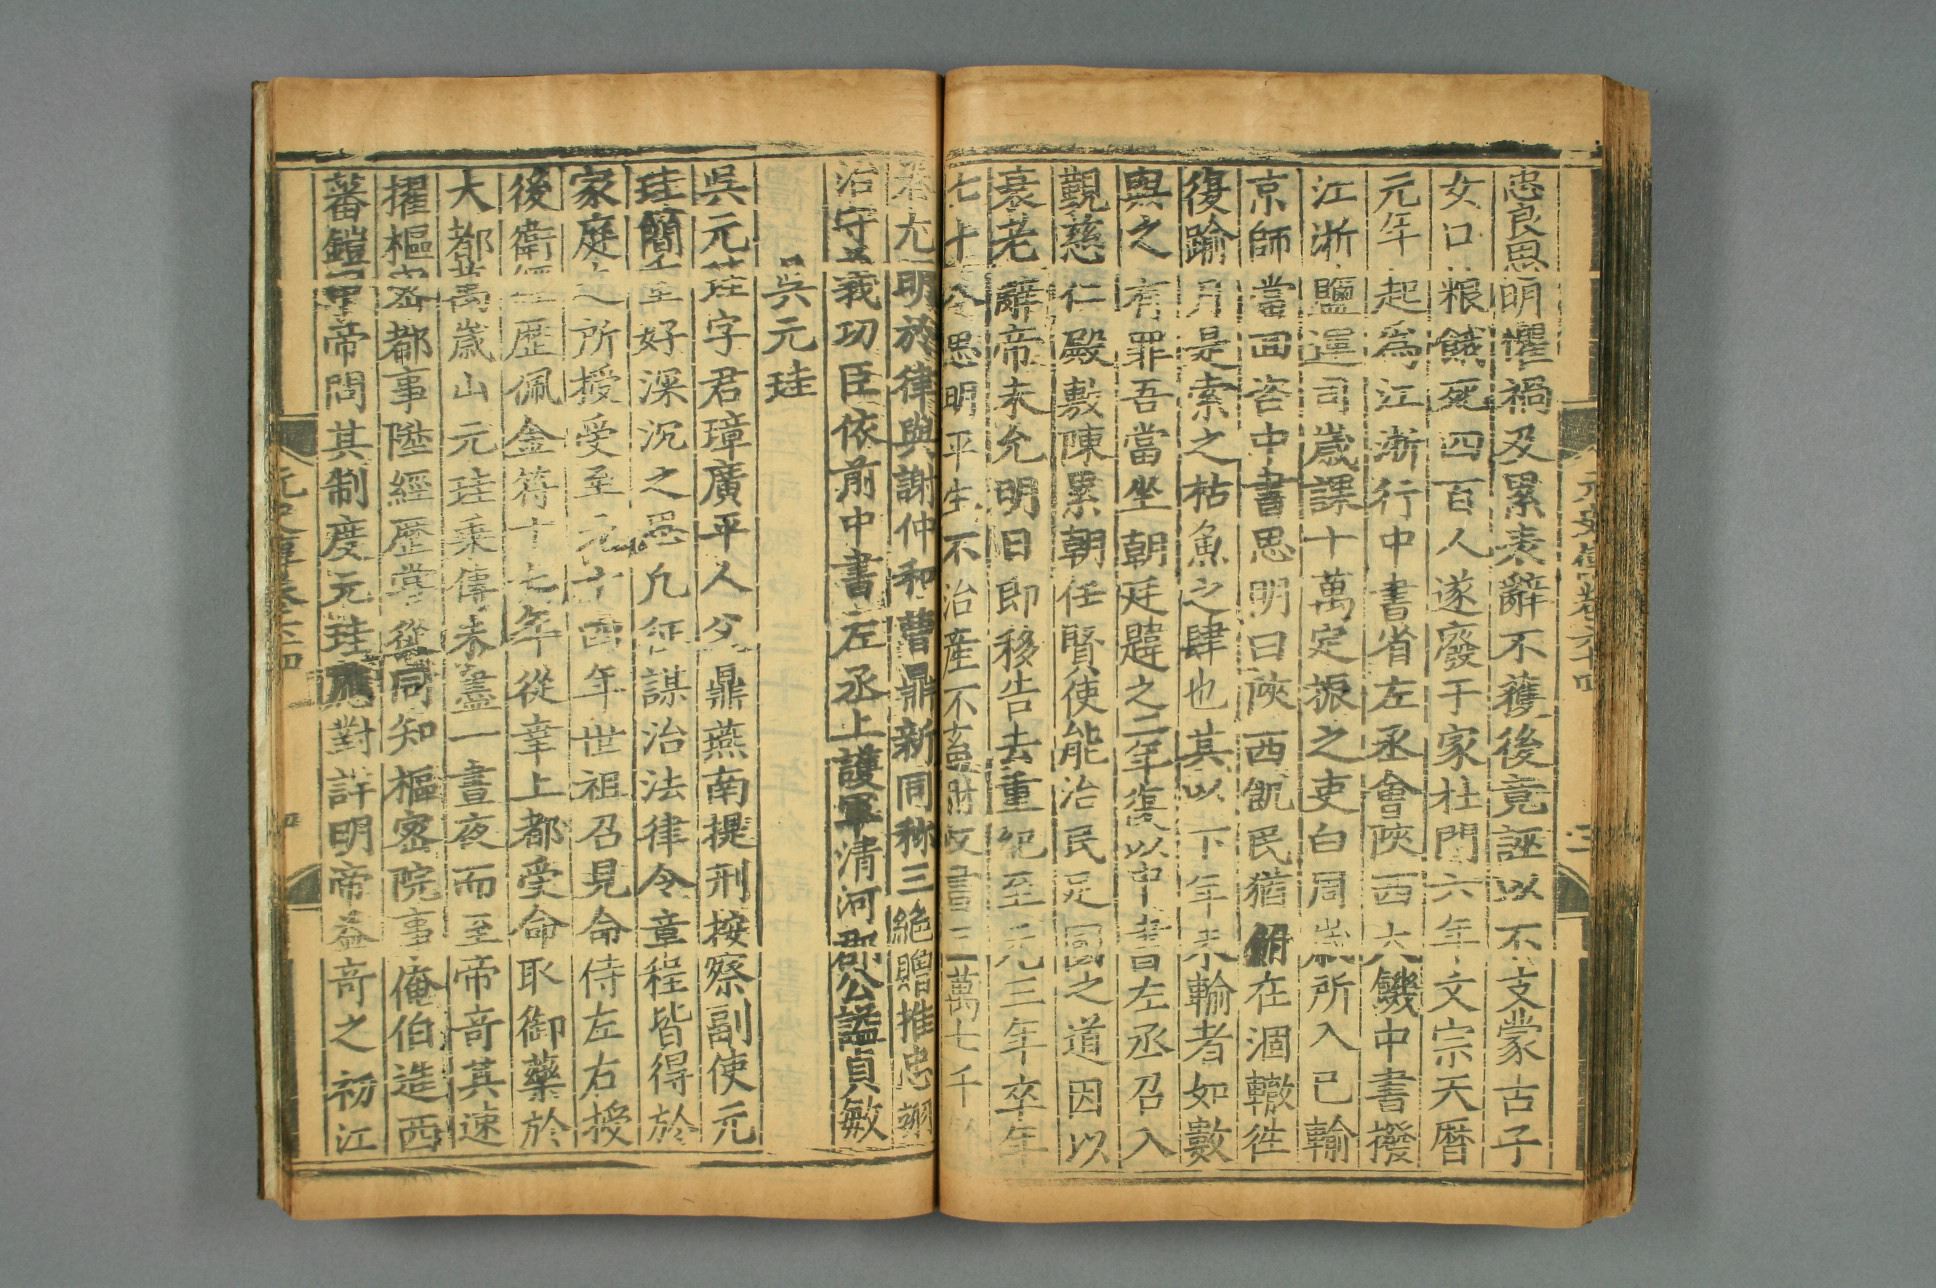 思明懼禍及累表辭不獲後竟誣以不支蒙古子
女口粮餓死四百人遂廢于家杜門六年文宗天曆
元年起為江浙行中書省左丞會陝西大饑中書撥
江浙鹽運司歲課十萬定振之吏白周歲所入已輸
京師當回咨中書思明曰陝西飢民猶鮒在涸轍徃
復踰月是索之枯魚之肆也其以下年未輸者如數
與之有罪吾當坐朝廷韙之二年復以中書左丞召入
覲慈仁殿敷陳累朝任賢使能治民足國之道因以
衰老辭帝未允明日即移告去重紀至元三年卒年
七十八思明平生不治產不畜財收書三萬七千
尤明於律與謝仲和曹鼎新同称三絕贈推忠翊
治守義功臣依前中書左丞上護軍清河郡公謚貞敏
吳元珪
吳元珪字君璋廣平人父鼎燕南提刑按察副使元
珪簡重好深沉之思凡征謀治法律令章程皆得於
家庭之所授受至元十四年世祖召見命侍左右授
後衛經歷佩金符十七年從幸上都受命取御藥於
大都萬歲山元珪乘傳未盡一晝夜而至帝奇其速
擢樞密都事陞經歷嘗從同知樞密院事俺伯造西
蕃鎧甲帝問其制度元珪應對詳明帝益奇之初江
元史傳卷六十四
三
元史傳卷六十四
四